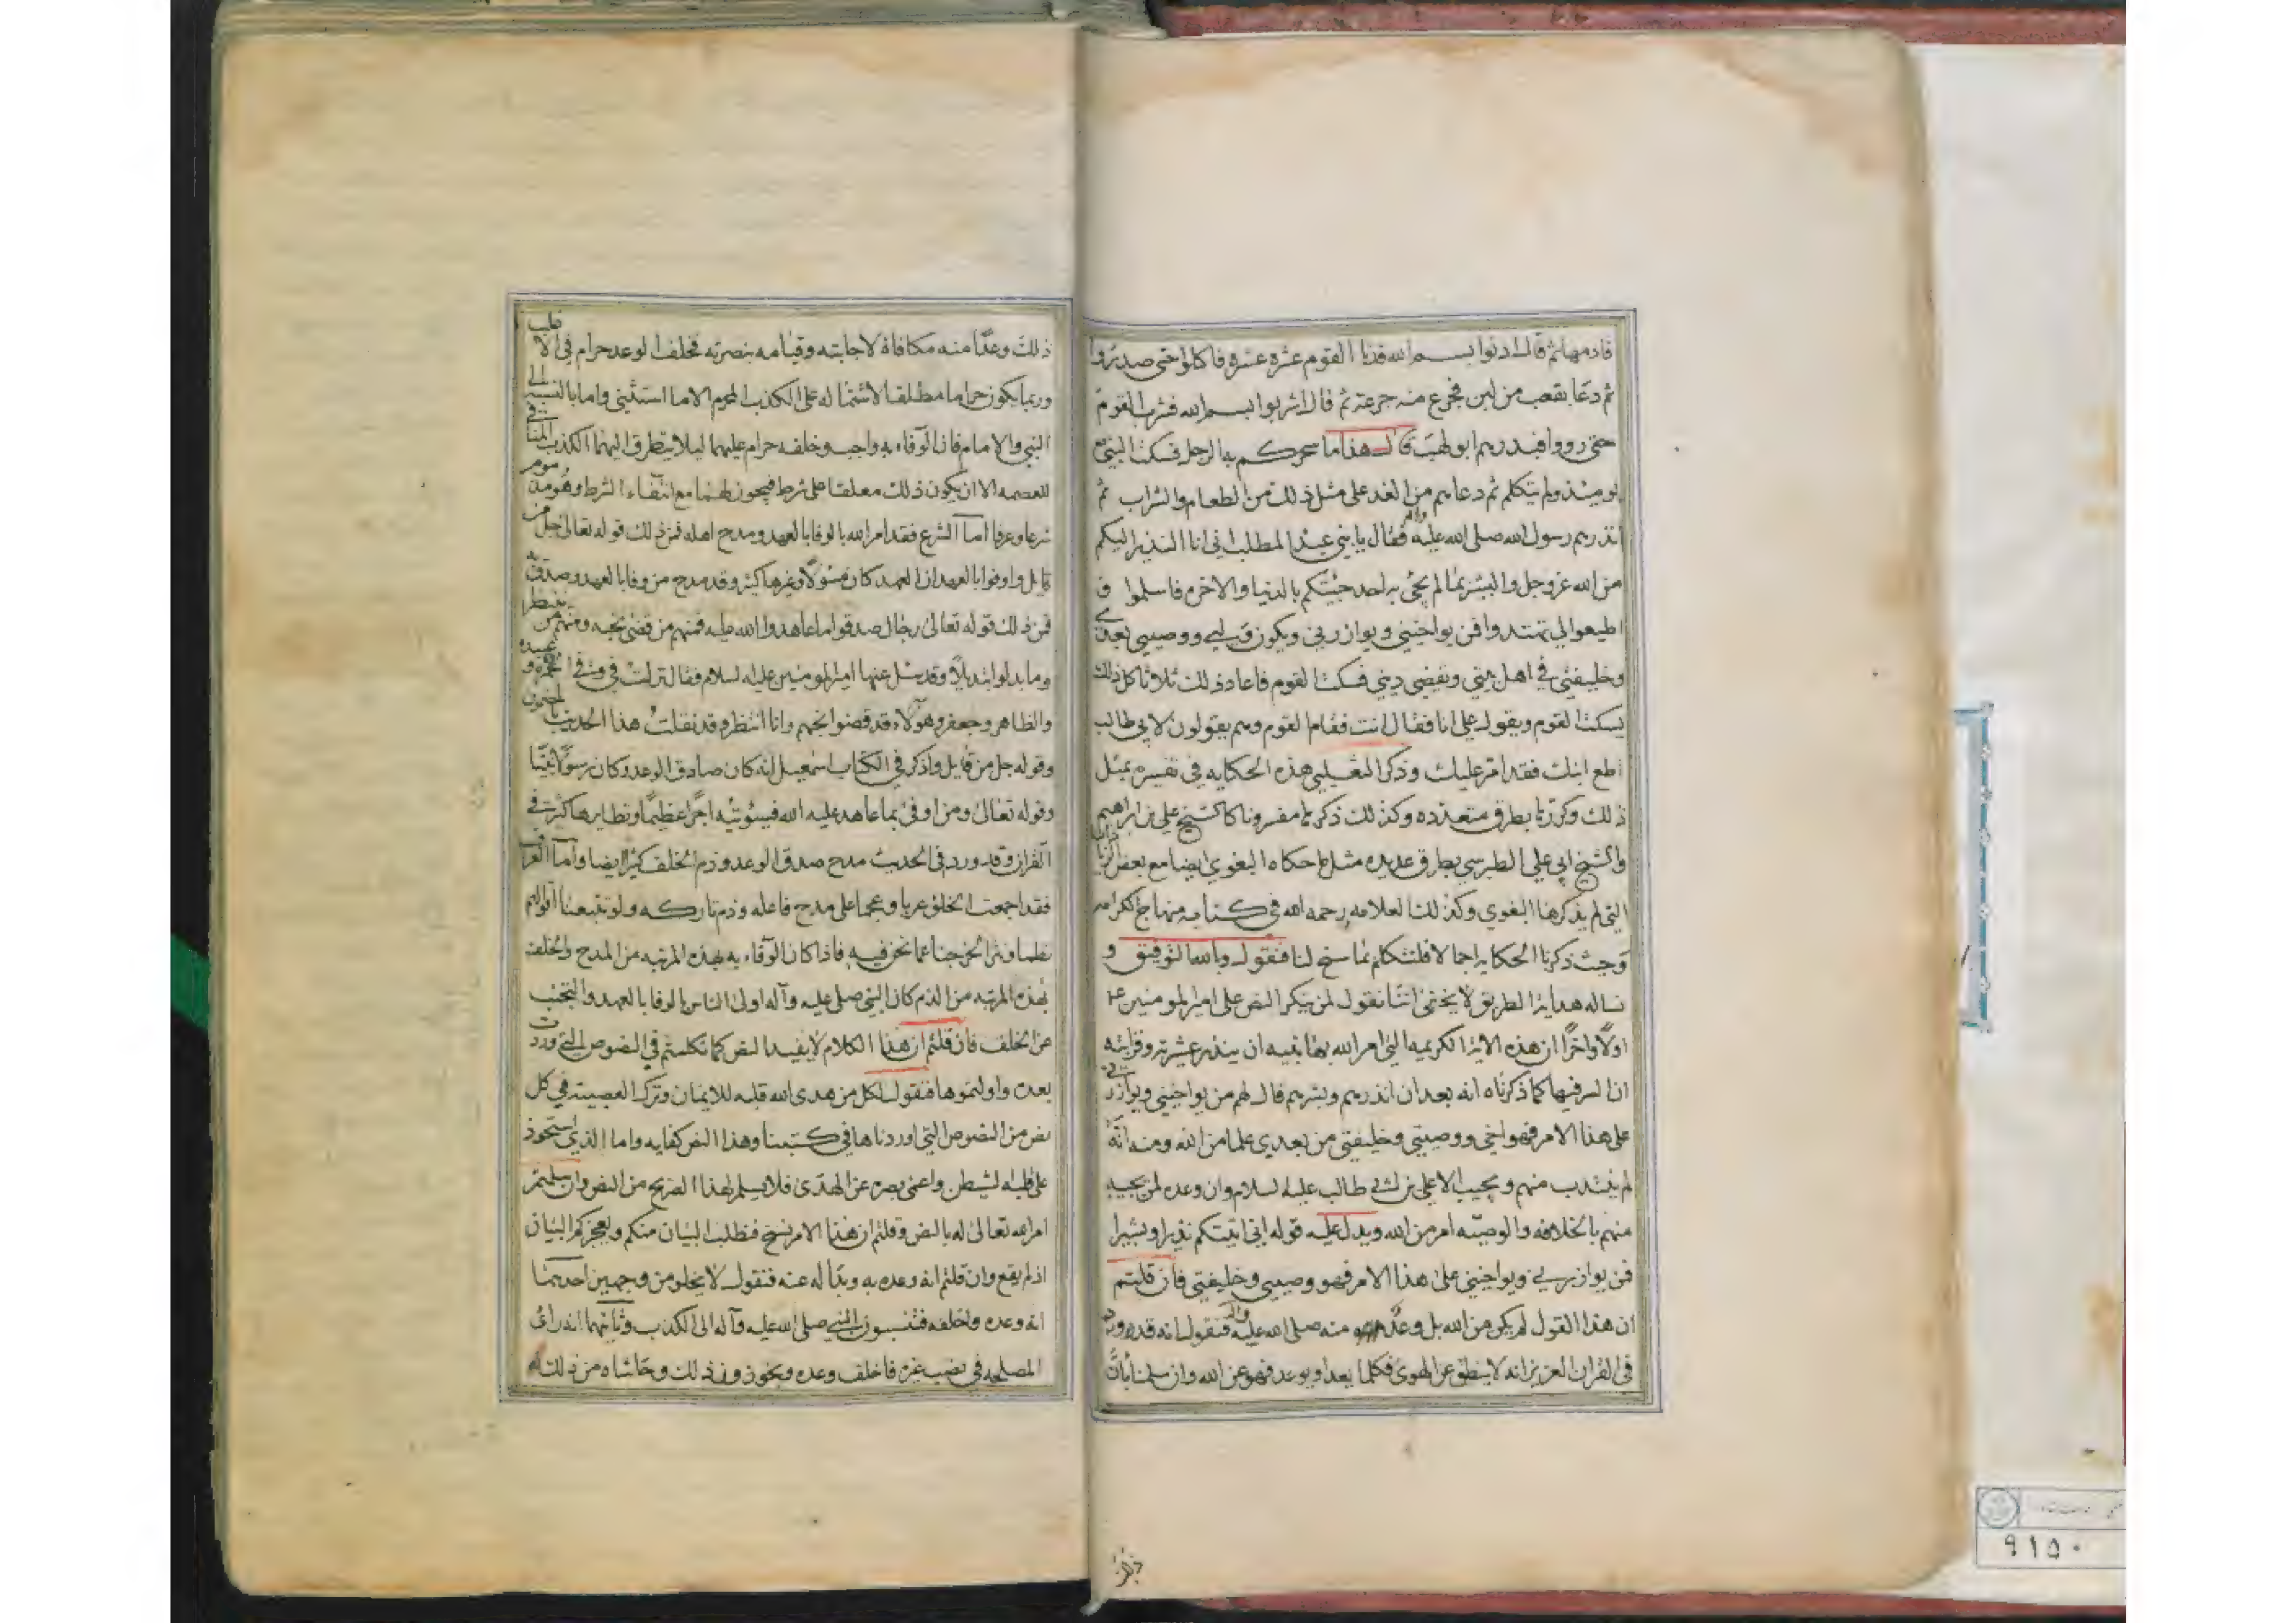 فادمها ثم قال ادنوا بسم الله فدنا القوم عشره عشره فاكلوا حتى صدروا
ثم دعا بقعب من لبن فجرع منه جرعة ثم قال اشربوا بسم الله فشرب القوم
حتى رووا فبدرهم ابو لهب فقال هذا ما سحركم به الرجل فسكت النبي ص
يومئذ ولم يتكلم ثم دعاهم من الغد على مثل ذلك من الطعام والشراب ثم
انذرهم رسول الله صلى الله عليه واله فقال يا بني عبد المطلب اني انا النذير اليكم
من الله عز وجل والبشير بما لم يجئ به احد جئتكم بالدنيا والاخره فاسلموا و
اطيعوني تهتدوا فمن يواخيني ويوازرني ويكون وليي ووصيي بعدي
وخليفتي في اهل بيتي ويقضي ديني فسكت القوم فاعاد ذلك ثلاثا كل ذلك
يسكت القوم ويقول علي انا فقال انت فقام القوم وهم يقولون لابي طالب
اطع ابنك فقد امر عليك وذكر الثعلبي هذه الحكايه في تفسيره بمثل
ذلك وكررها بطرق متعدده وكذلك ذكرها مفسرونا كالشيخ علي بن ابراهيم
والشيخ ابي علي الطبرسي بطرق عديده مثل ما حكاه البغوي ايضا مع بعض
التي لم يذكرها البغوي وكذلك العلامه رحمه الله في كتابه منهاج الكرامه
وحيث ذكرنا الحكايه اجمالا فلنتكلم بما سنح لنا فنقول وبالله التوفيق و
نساله هداية الطريق لا يخفى اننا نقول لمن ينكر النص على امير المومنين ع
اولا واخرا ان هذه الاية الكريمه التي امر الله بها نبيه ان ينذر عشيرته وقرابته
ان السر فيها كما ذكرناه انه بعد ان انذرهم وبشرهم قال لهم من يواخيني ويوازرني
على هذا الامر فهو اخي ووصيي وخليفتي من بعدي علما من الله ومنه انه
لم ينتدب منهم ويجيب الا علي بن ابي طالب عليه السلام وان وعده لمن يجيبه
منهم بالخلافه والوصيه امر من الله ويدل عليه قوله اني اتيتكم نذيرا وبشيرا
فمن يوازرني ويواخيني على هذا الامر فهو وصيي وخليفتي فان قلتم
ان هذا القول لم يكن من الله بل وعد منه صلى الله عليه واله فنقول انه قد ورد
في القران العزيز انه لا ينطق عن الهوى فكلما يعد او يوعد فهو عن الله وان سلمنا بان
ذلك وعدا منه مكافاة لاجابته وقيامه بنصرته فخلف الوعد حرام في الاغلب
وربما يكون حراما مطلقا لاشتماله على الكذب المحرم الا ما استثني واما بالنسبه الى
النبي والامام فان الوفاء به واجب وخلفه حرام عليهما ليلا يتطرق اليهما الكذب المنافي
للعصمه الا ان يكون ذلك معلقا على شرط فيجوز لهما مع انتفاء الشرط وهو مذموم
شرعا وعرفا اما الشرع فقد امر الله بالوفا بالعهد ومدح اهله فمن ذلك قوله تعالى جل من
قايل واوفوا بالعهد ان العهد كان مسؤلا وغيرها كثير وقد مدح من وفا بالعهد وصدق به
فمن ذلك قوله تعالى رجال صدقوا ما عاهدوا الله عليه فمنهم من قضى نحبه ومنهم من ينتظر
وما بدلوا تبديلا وقد سئل عنها امير المومنين عليه السلام فقال نزلت في وفي حمزه و عبيده
والطاهر وجعفر وهولاء قد قضوا نحبهم وانا انتظر وقد نقلت هذا الحديث
وقوله جل من قايل واذكر في الكتاب اسمعيل انه كان صادق الوعد وكان رسولا نبيا
وقوله تعالى ومن اوفى بما عاهد عليه الله فسيؤتيه اجرا عظيما ونظايرها كثير في
القران وقد ورد في الحديث مدح صدق الوعد وذم الخلف كثيرا ايضا واما العرف
فقد اجمعت الخلق عربا وعجما على مدح فاعله وذم تاركه ولو تتبعنا اقوالهم
نظما ونثرا لخرجنا عما نحن فيه فاذا كان الوفاء به بهذه المرتبه من المدح والخلف
بهذه المرتبه من الذم كان النبي صلى عليه وآله اولى الناس بالوفا بالعهد والتجنب
عن الخلف فان قلتم ان هذا الكلام لا يفيد النص كما تكلمتم في النصوص التي وردت
بعده واولتموها فنقول لكل من هدى الله قلبه للايمان وترك العصبية في كل
نص من النصوص التي اوردناها في كتبنا وهذا النص كفايه واما الذي استحوذ
على قلبه الشيطن واعمى بصره عن الهدى فلا يسلم لهذا الصريح من النص وان سلمتم
امر الله تعالى له بالنص وقلتم ان هذا الامر نسخ فنطلب البيان منكم ويعجزكم البيان
اذ لم يقع وان قلتم انه وعده به وبدا له عنه فنقول لا يخلو من وجهين احدهما
انه وعده واخلفه فتنسبون النبي صلى الله عليه وآله الى الكذب وثانيهما انه راى
المصلحه في نصب غيره فاخلف وعده ويخوذون ذلك وحاشاه من ذلك
٩١٥٠